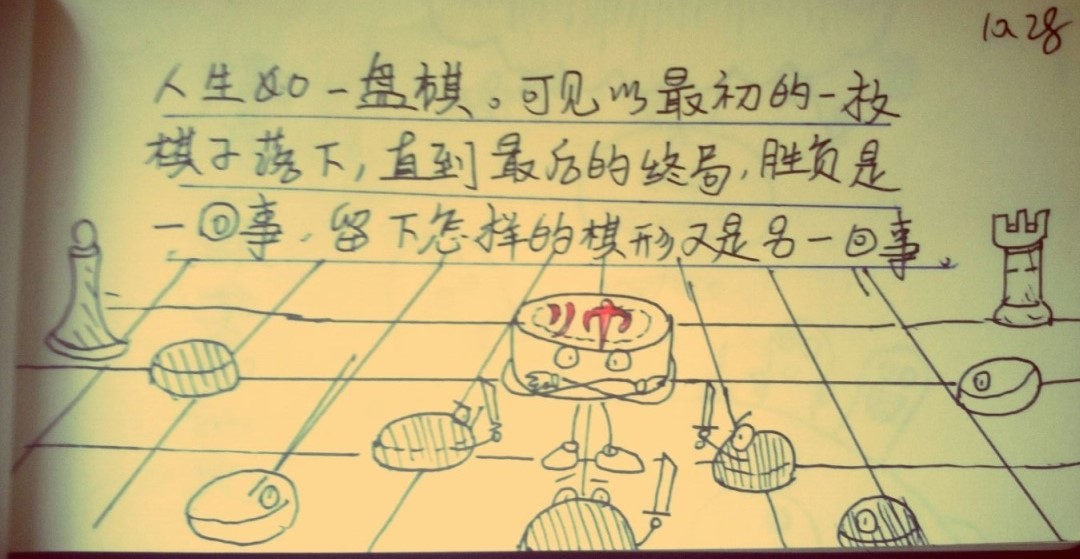 10.28
人生如一盘棋。可见以最初的一枚
棋子落下,直到最后的终局,胜负是
一回事,留下怎样的棋形又是另一回事。